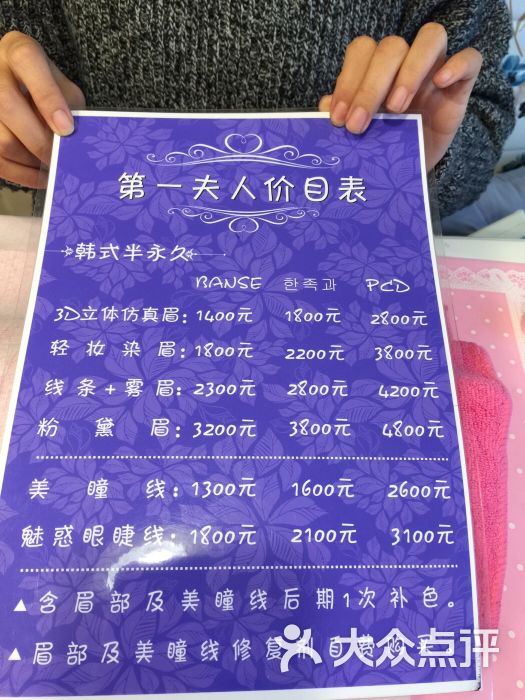 第一夫人价目表
韩式半永久
BANSE 한족과 PCD
3D立体仿真眉:1400元 1800元 2800元
轻妆染眉:1800元 2200元 3800元
线条+雾眉:2300元 2800元 4200元
粉黛眉:3200元 3800元 4800元
美瞳线:1300元 1600元 2600元
魅惑眼睫线:1800元 2100元 3100元
▲含眉部及美瞳线后期1次补色。
▲眉部及美瞳线修复剂自费
大众点评